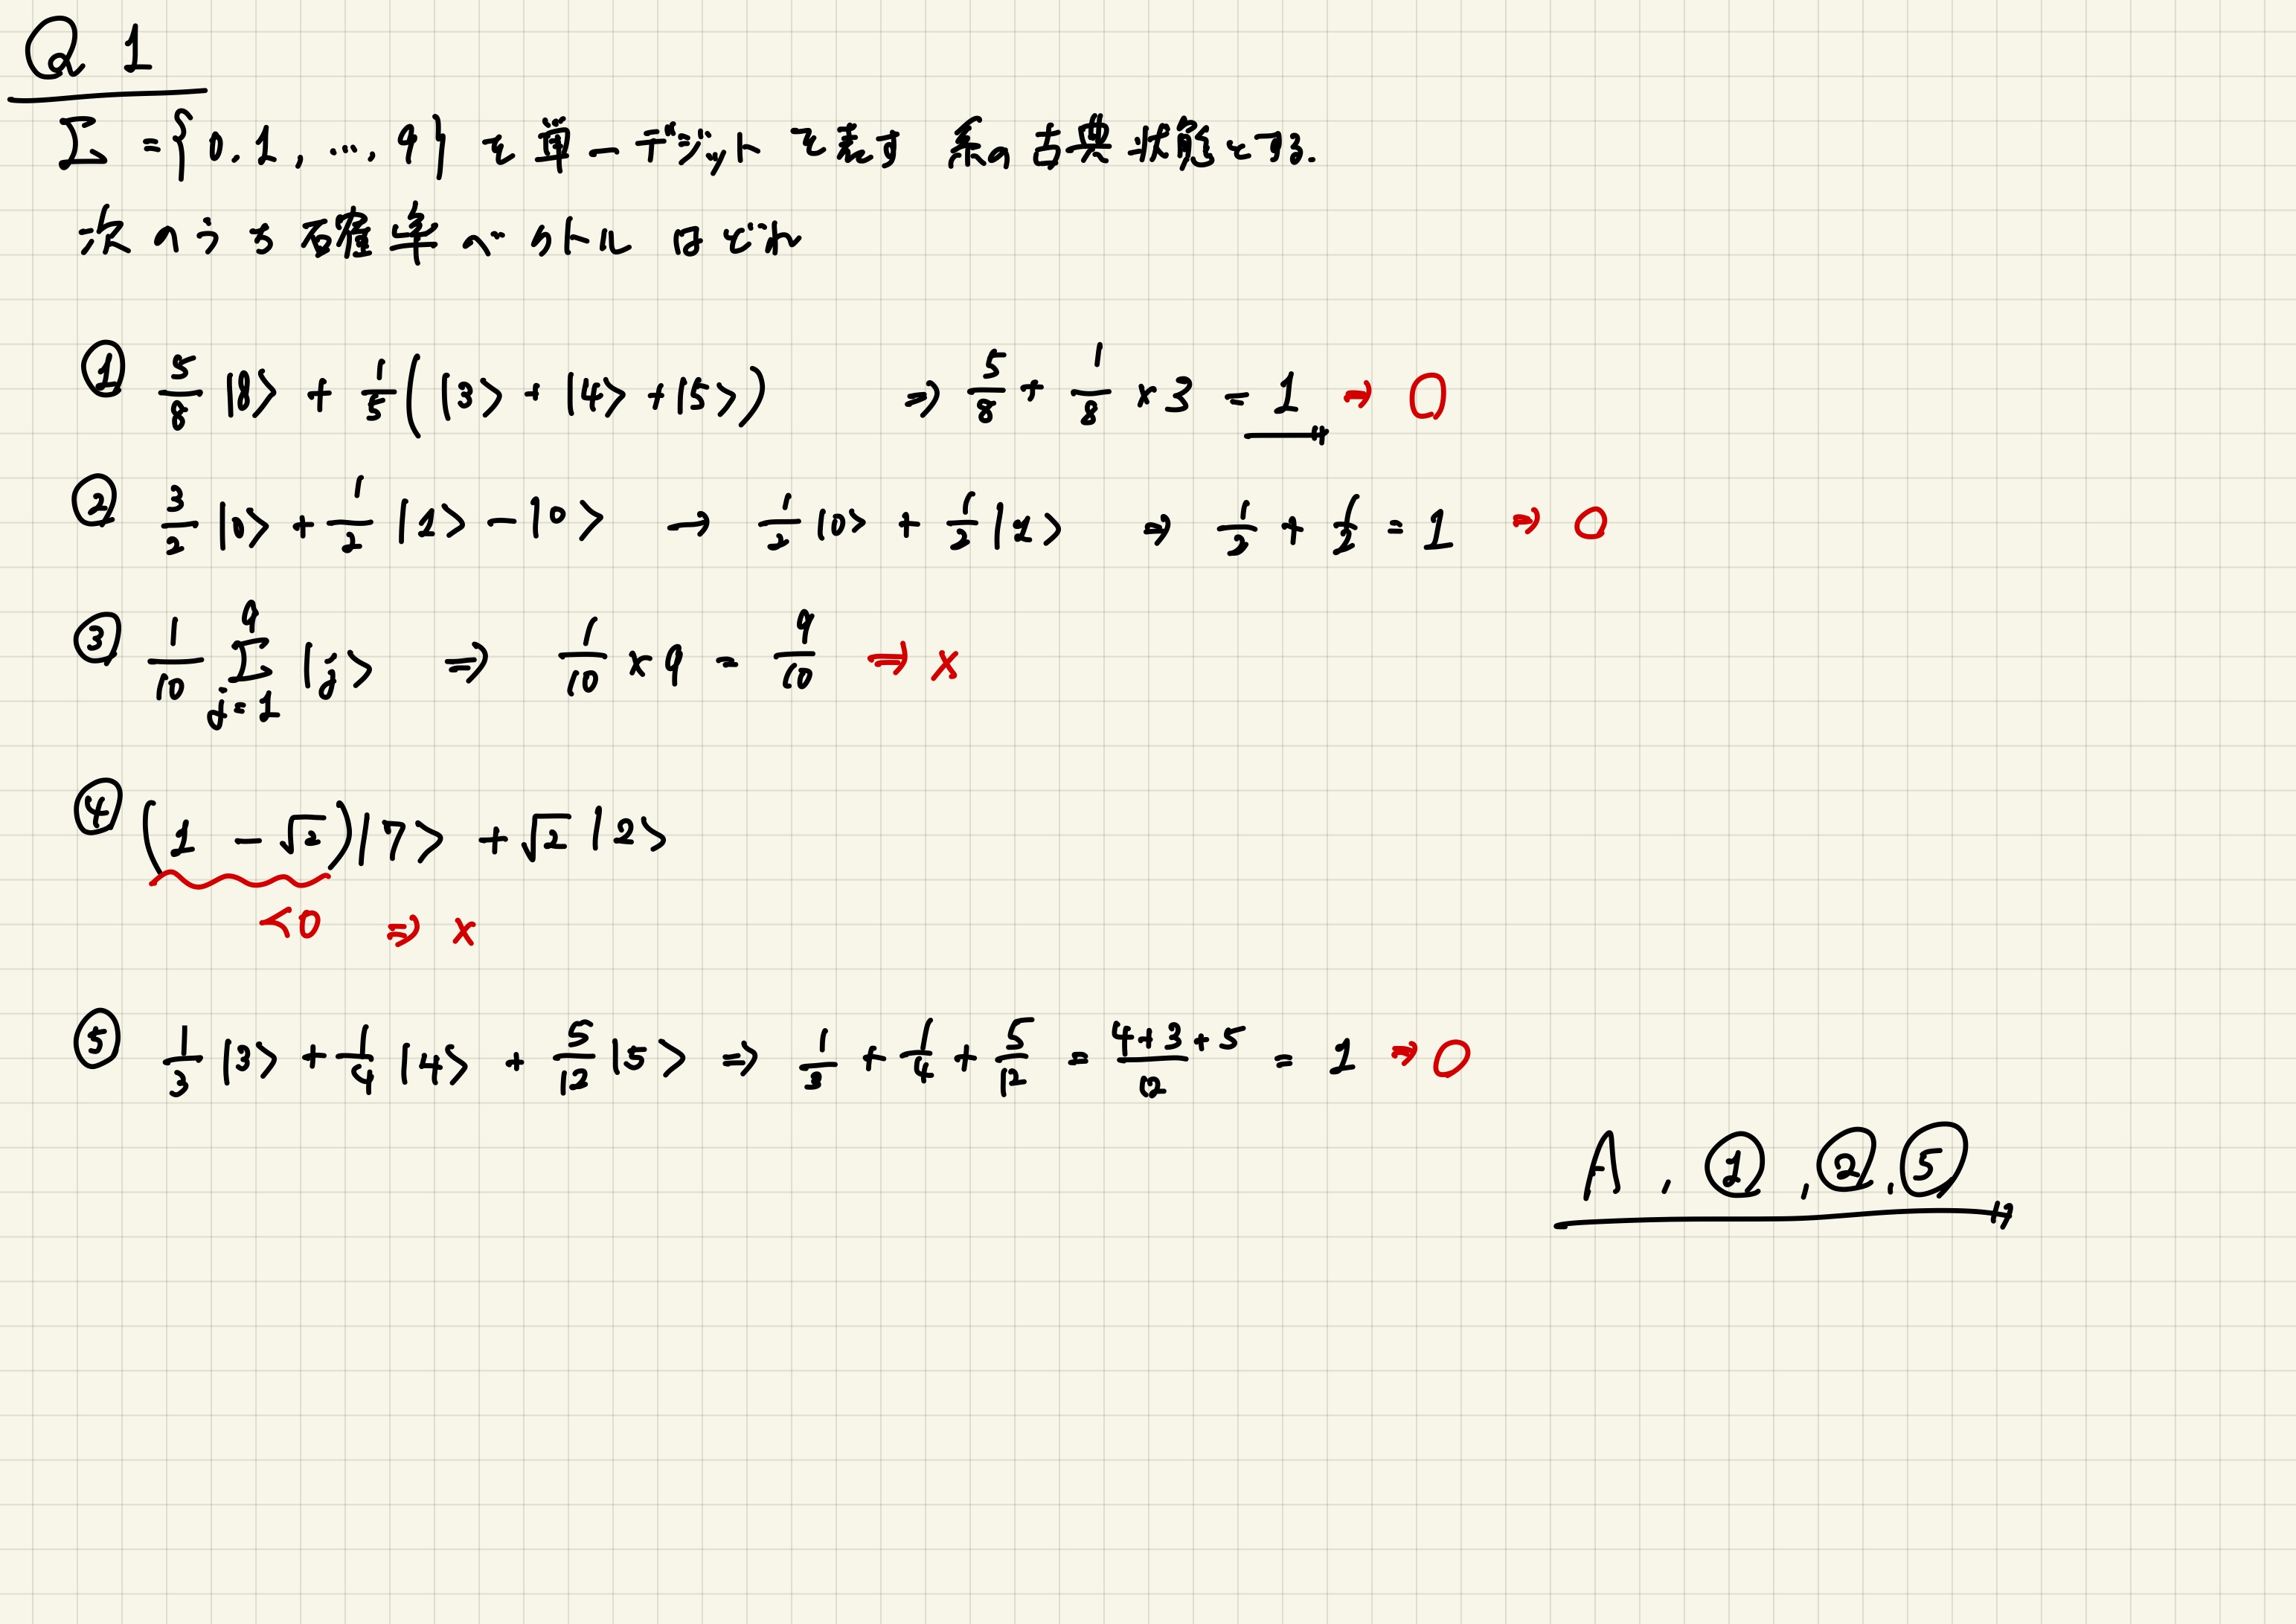 Q 1
Σ = {0. 1, ..., 9} を単一デジットを表す 系の古典状態とする.
次のうち確率ベクトルはどれ
① 5/8 |8> + 1/5 (|3> + |4> + |5>) ⇒ 5/8 + 1/8 × 3 = 1 ⇒ O
② 3/2 |0> + 1/2 |1> - |0> → 1/2 |0> + 1/2 |1> ⇒ 1/2 + 1/2 = 1 ⇒ O
③ 1/10 Σ_{j=1}^{9} |j> ⇒ 1/10 × 9 = 9/10 ⇒ ×
④ (1 - √2)|7> + √2 |2>
<0 ⇒ ×
⑤ 1/3 |3> + 1/4 |4> + 5/12 |5> ⇒ 1/3 + 1/4 + 5/12 = (4+3+5)/12 = 1 ⇒ O
A, ①, ②, ⑤